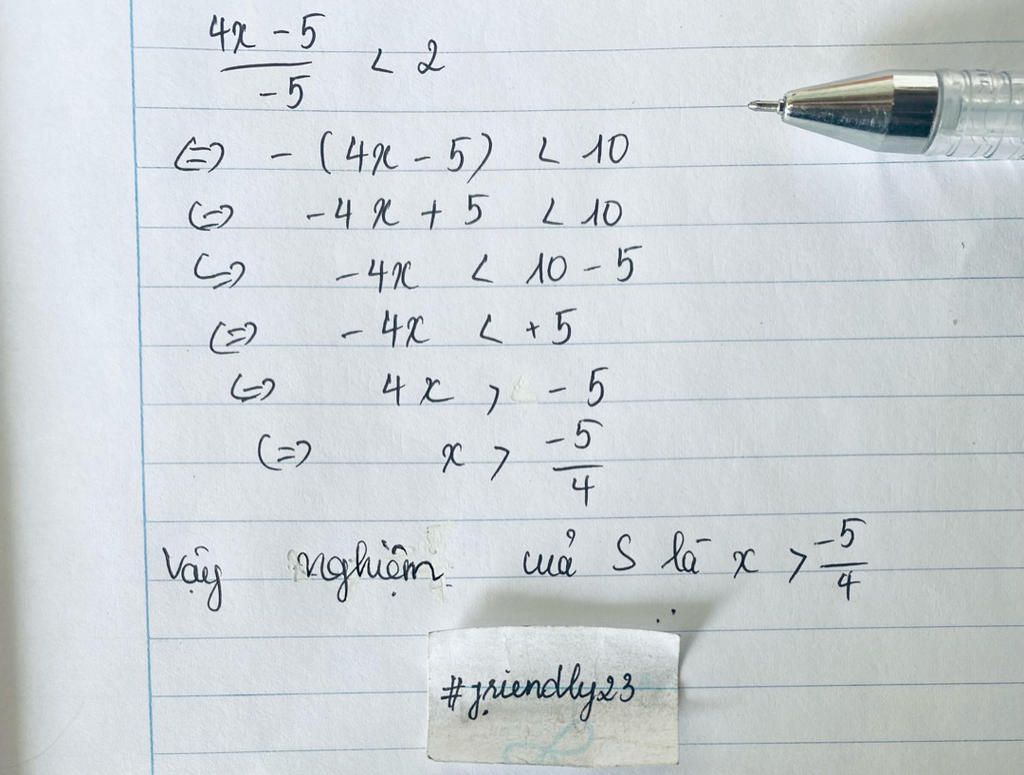 4x - 5
-5
< 2
<=> - (4x - 5) < 10
<=> -4x + 5 < 10
<=> -4x < 10 - 5
<=> -4x < +5
<=> 4x > -5
<=> x > -5/4
Vậy nghiệm của S là x > -5/4
#friendly23